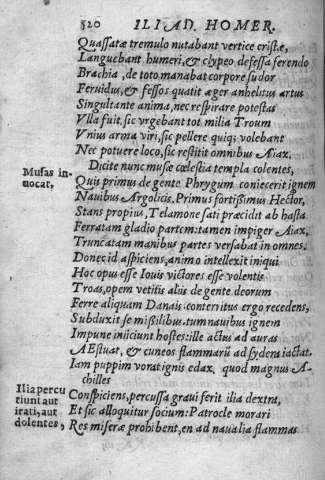 520 ILIAD. HOMER.
Quassatæ tremulo nutabant vertice cristæ,
Languebant humeri, & clypeo defessa ferendo
Brachia, de toto manabat corpore sudor
Feruidus, & fessos quatit æger anhelitus artus
Singultante anima, nec respirare potestas
Vlla fuit, sic vrgebant tot milia Troum
Vnius arma viri, sic pellere quiq; volebant
Nec potuere loco, sic restitit omnibus Aiax.
Musas in
uocat,
Dicite nunc musæ cœlestia templa colentes,
Quis primus de gente Phrygum coniecerit ignem
Nauibus Argolicis. Primus fortissimus Hector,
Stans propius, Telamone sati præcidit ab hasta
Ferratam gladio partem: tamen impiger Aiax,
Truncatam manibus partes versabat in omnes.
Donec id aspiciens, animo intellexit iniqui
Hoc opus esse Iouis victores esse volentis
Troas, opem vetitis aliis de gente deorum
Ferre aliquam Danais: conterritus ergo recedens,
Subduxit se missilibus. tum nauibus ignem
Impune iniiciunt hostes: ille actus ad auras
AEstuat, & cuneos flammarū ad sydera iactat.
Iam puppim vorat ignis edax, quod magnus A-
chilles
Ilia percu
tiunt aut
irati, aut
dolentes,
Conspiciens, percussa graui ferit ilia dextra,
Et sic alloquitur socium: Patrocle morari
Res miseræ prohibent, en ad naualia flammas